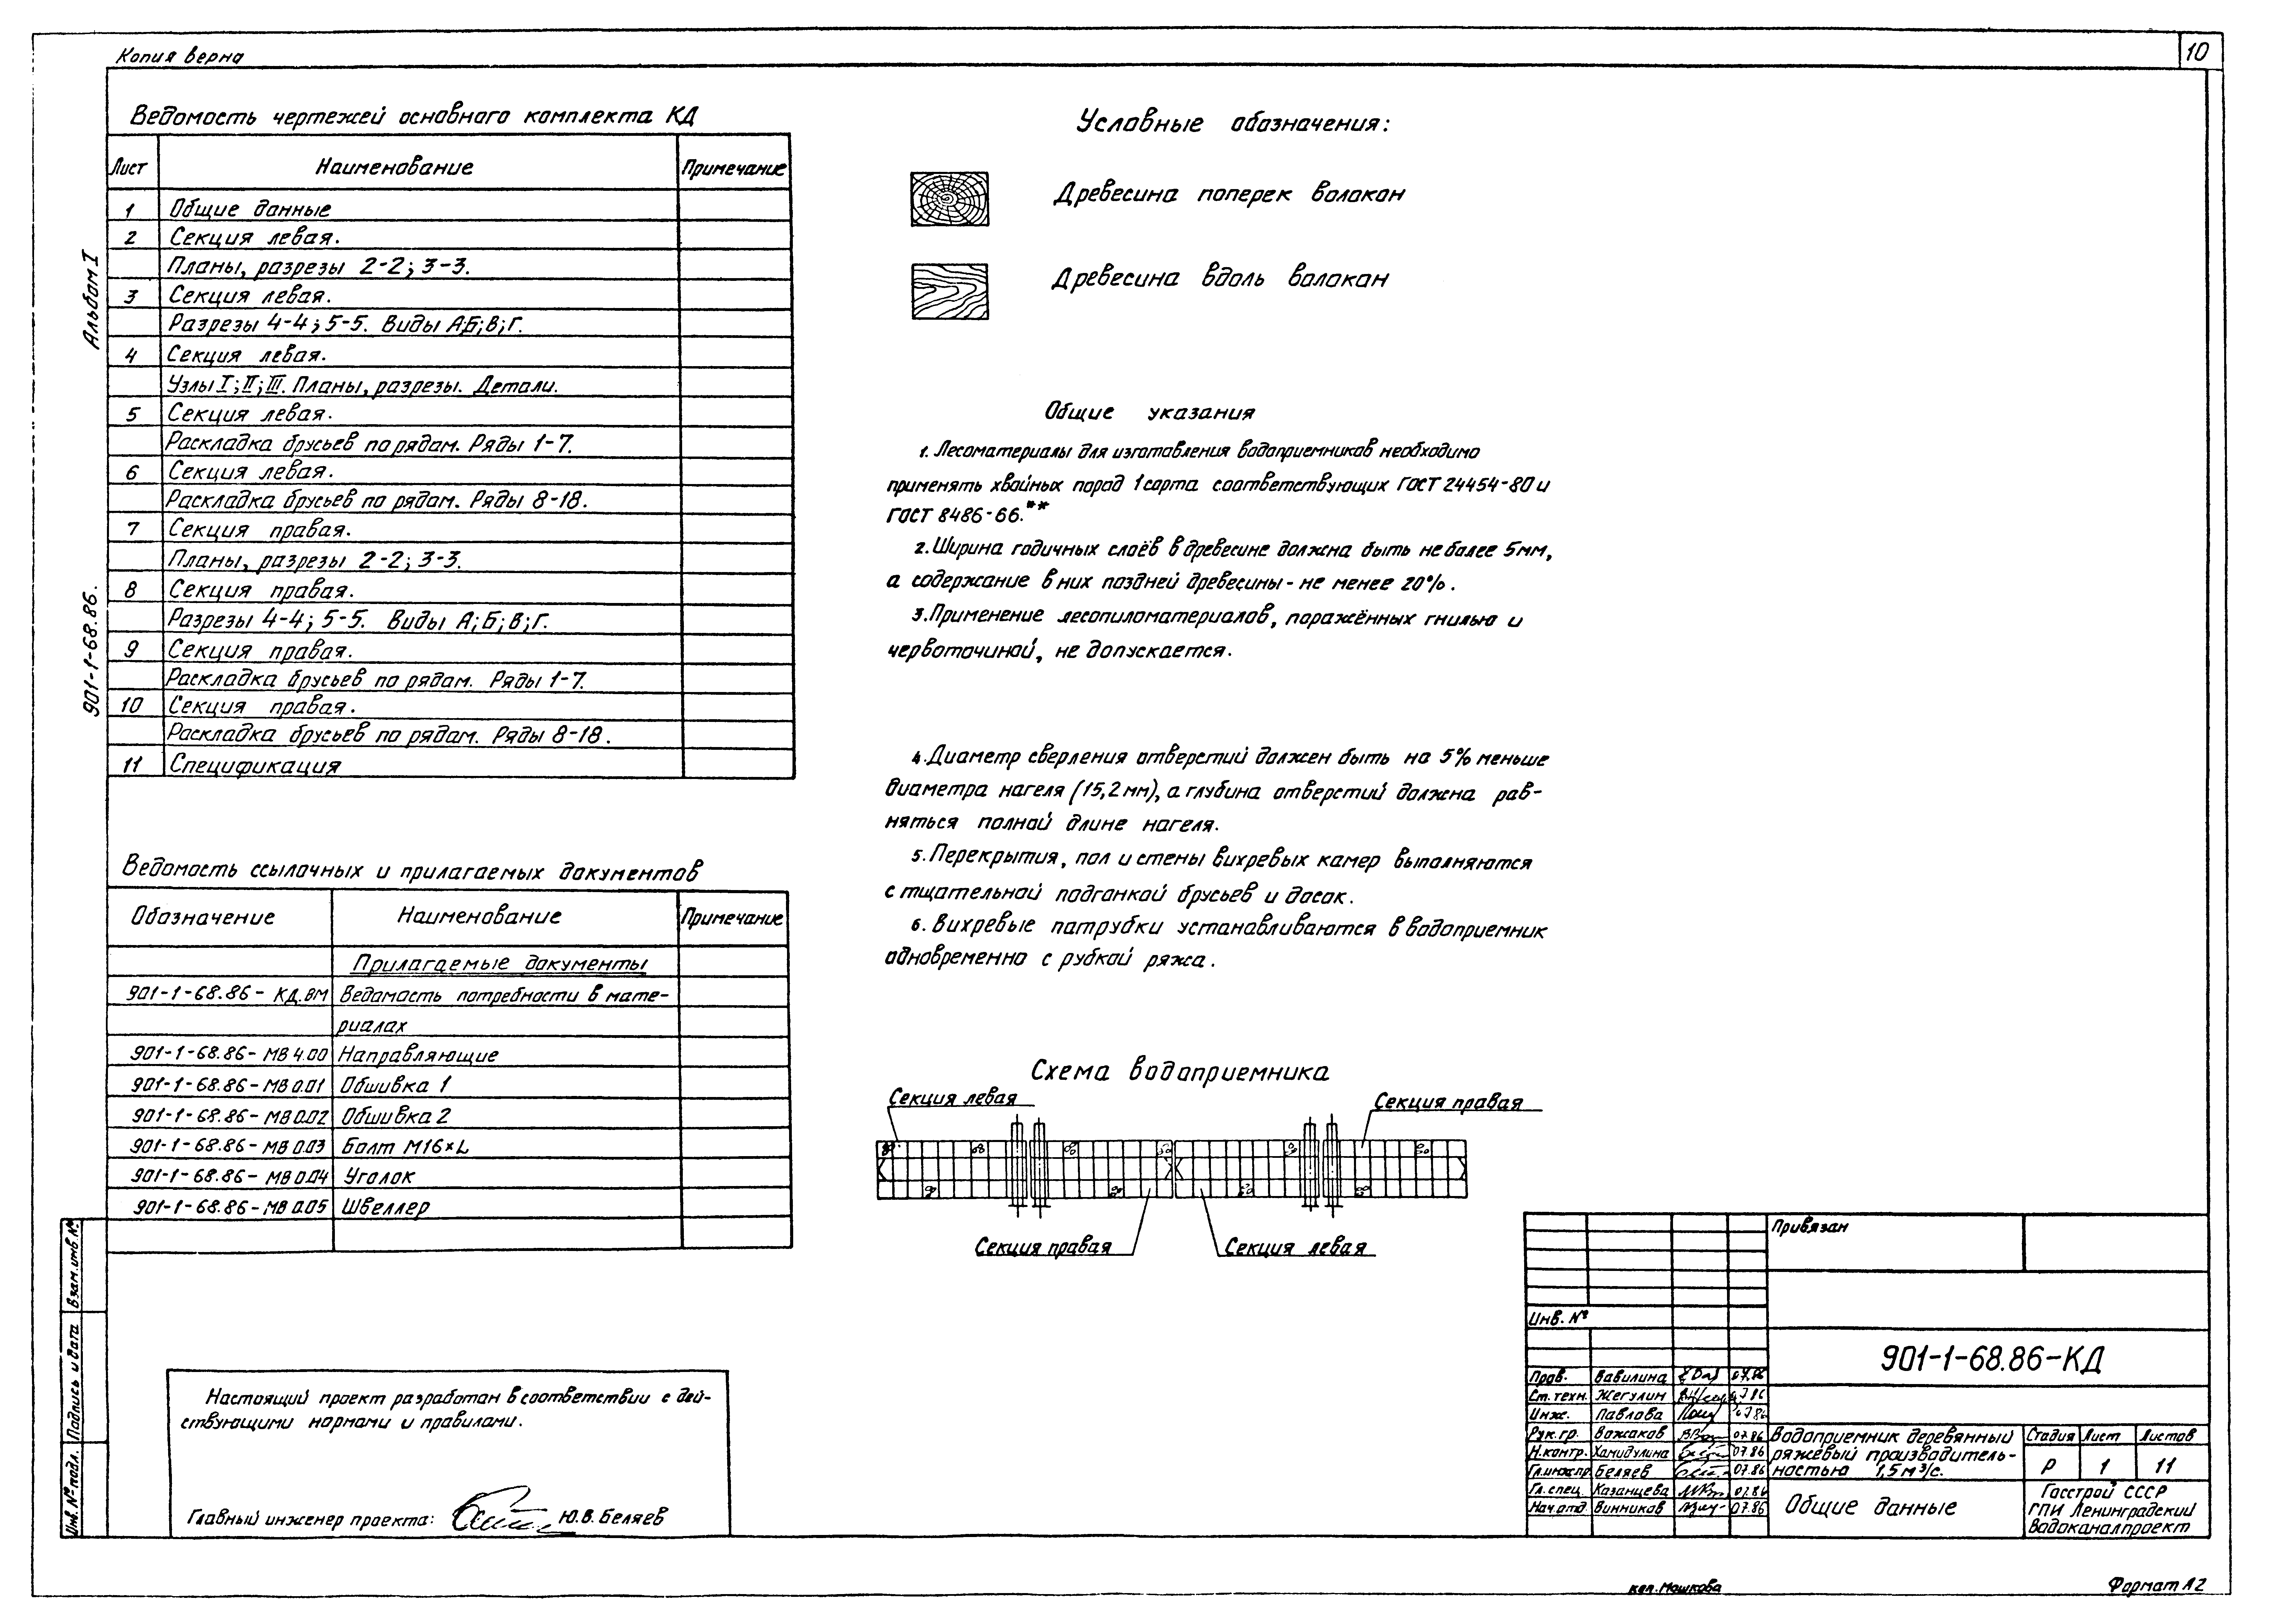 Копия верна
10
Альбом I
901-1-68.86.
Ведомость чертежей основного комплекта КД
Лист Наименование Примечание
1 Общие данные
2 Секция левая.
Планы, разрезы 2-2; 3-3.
3 Секция левая.
Разрезы 4-4; 5-5. Виды А;Б;В;Г.
4 Секция левая.
Узлы I; II; III. Планы, разрезы. Детали.
5 Секция левая.
Раскладка брусьев по рядам. Ряды 1-7.
6 Секция левая.
Раскладка брусьев по рядам. Ряды 8-18.
7 Секция правая.
Планы, разрезы 2-2; 3-3.
8 Секция правая.
Разрезы 4-4; 5-5. Виды А; Б; В; Г.
9 Секция правая.
Раскладка брусьев по рядам. Ряды 1-7.
10 Секция правая.
Раскладка брусьев по рядам. Ряды 8-18.
11 Спецификация
Ведомость ссылочных и прилагаемых документов
Обозначение Наименование Примечание
Прилагаемые документы
901-1-68.86- КД.ВМ Ведомость потребности в мате-
риалах
901-1-68.86- МВ 4.00 Направляющие
901-1-68.86- МВ 0.01 Обшивка 1
901-1-68.86- МВ 0.02 Обшивка 2
901-1-68.86- МВ 0.03 Болт М16×L
901-1-68.86- МВ 0.04 Уголок
901-1-68.86- МВ 0.05 Швеллер
Настоящий проект разработан в соответствии с дей-
ствующими нормами и правилами.
Главный инженер проекта: Ю.В. Беляев
Взам. инв. №
Подпись и дата
Инв. № подл.
Условные обозначения:
Древесина поперек волокон
Древесина вдоль волокон
Общие указания
1. Лесоматериалы для изготовления водоприемников необходимо
применять хвойных пород 1 сорта соответствующих ГОСТ 24454-80 и
ГОСТ 8486-66.**
2. Ширина годичных слоёв в древесине должна быть не более 5мм,
а содержание в них поздней древесины - не менее 20%.
3. Применение лесопиломатериалов, поражённых гнилью и
червоточиной, не допускается.
4. Диаметр сверления отверстий должен быть на 5% меньше
диаметра нагеля (15,2 мм), а глубина отверстий должна рав-
няться полной длине нагеля.
5. Перекрытия, пол и стены вихревых камер выполняются
с тщательной подгонкой брусьев и досок.
6. Вихревые патрубки устанавливаются в водоприемник
одновременно с рубкой ряжа.
Схема водоприемника
Секция левая Секция правая
Секция правая Секция левая
Привязан
Инв. №
901-1-68.86-КД
Пров. Вавилина 07.86
Ст. техн. Жегулин 07.86
Инж. Павлова 07.86
Рук. гр. Вожаков 07.86
Н. контр. Хамидулина 07.86
Гл. инж. пр. Беляев 07.86
Гл. спец. Казанцева 07.86
Нач. отд. Винников 07.86
Водоприемник деревянный
ряжевый производитель-
ностью 1,5 м³/с.
Стадия Лист Листов
Р 1 11
Общие данные
Госстрой СССР
ГПИ Ленинградский
Водоканалпроект
коп. Мошкова
Формат А2